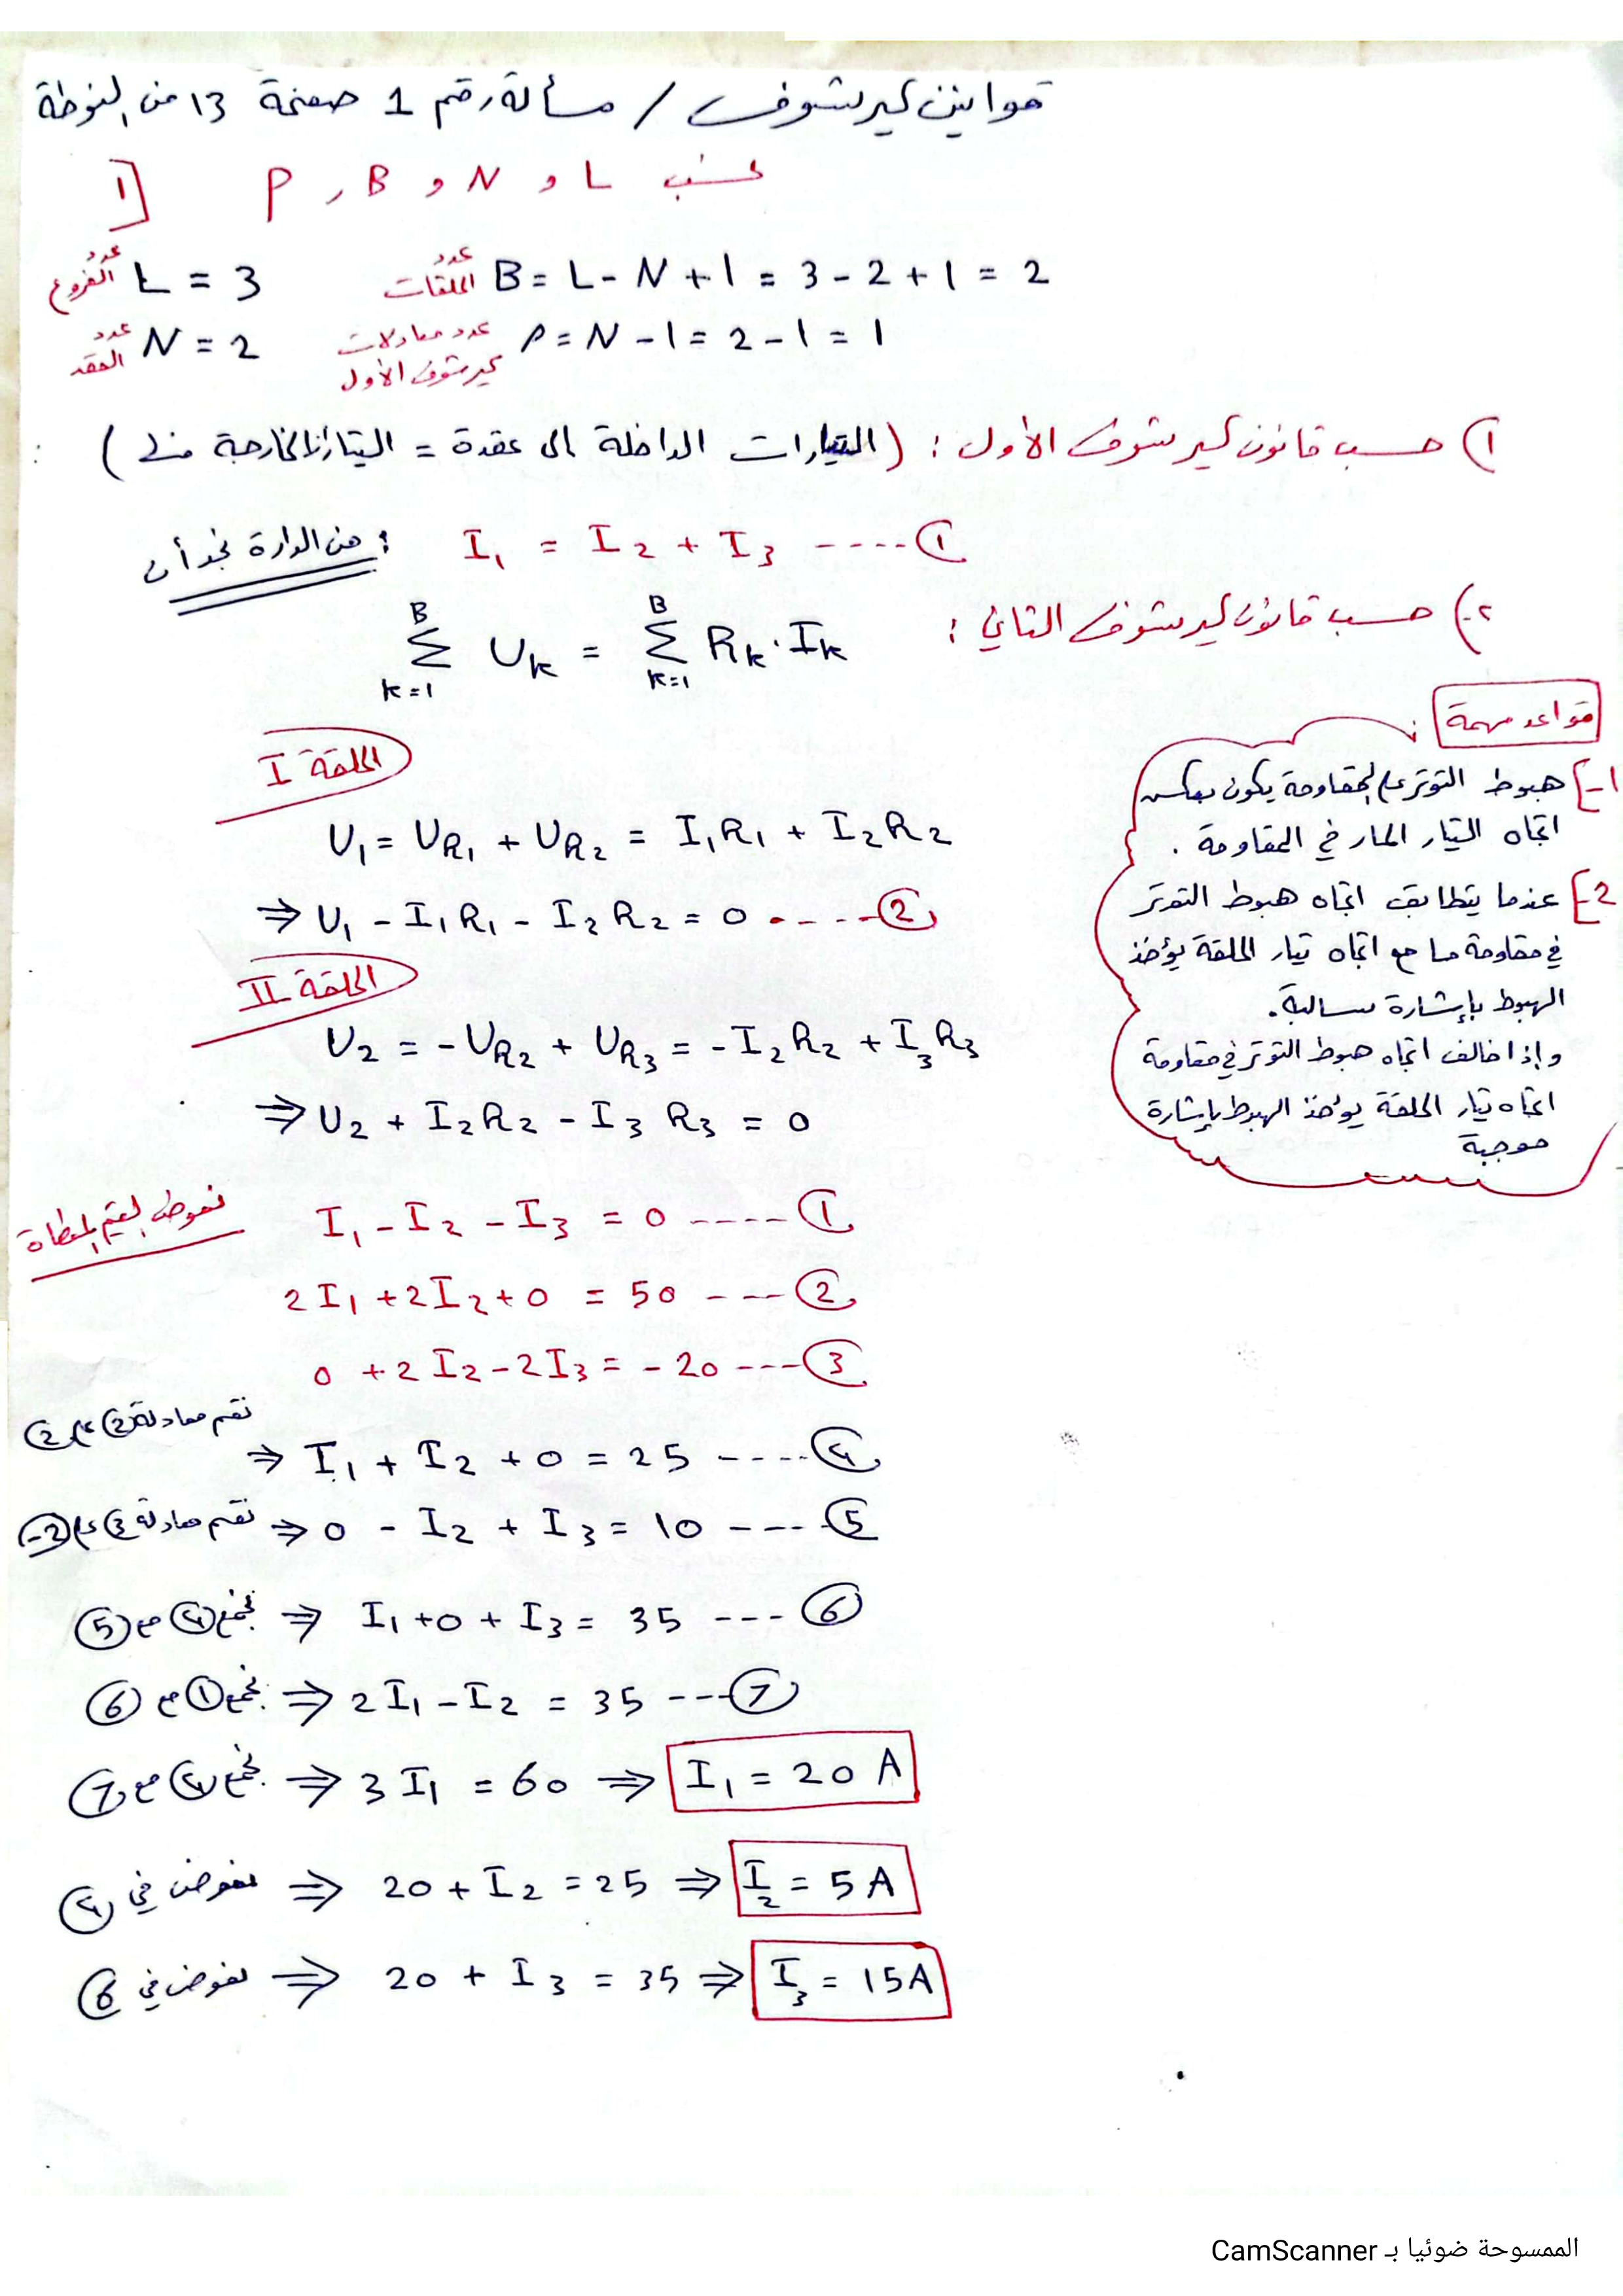 قوانين كيرشوف / مسألة رقم 1 صفحة 13 من النوطة
1] نحسب L و N و B و P
عدد الفروع L = 3
عدد الحلقات B = L - N + 1 = 3 - 2 + 1 = 2
عدد العقد N = 2
عدد معادلات كيرشوف الأول P = N - 1 = 2 - 1 = 1
1) حسب قانون كيرشوف الأول : (التيارات الداخلة الى عقدة = التيارات الخارجة منها)
من الدارة نجد أن : I₁ = I₂ + I₃ ---- ①
2-) حسب قانون كيرشوف الثاني :
\sum_{k=1}^{B} U_k = \sum_{k=1}^{B} R_k · I_k
الحلقة I
U₁ = U_{R₁} + U_{R₂} = I₁R₁ + I₂R₂
⇒ U₁ - I₁R₁ - I₂R₂ = 0 ---- ②
الحلقة II
U₂ = -U_{R₂} + U_{R₃} = -I₂R₂ + I₃R₃
⇒ U₂ + I₂R₂ - I₃R₃ = 0
قواعد مهمة :
1-] هبوط التوتر على المقاومة يكون بعكس
اتجاه التيار المار في المقاومة .
2-] عندما يتطابق اتجاه هبوط التوتر
في مقاومة ما مع اتجاه تيار الحلقة يؤخذ
الهبوط بإشارة سالبة.
وإذا خالف اتجاه هبوط التوتر في مقاومة
اتجاه تيار الحلقة يؤخذ الهبوط بإشارة
موجبة
نعوض القيم المعطاة
I₁ - I₂ - I₃ = 0 ---- ①
2I₁ + 2I₂ + 0 = 50 --- ②
0 + 2I₂ - 2I₃ = - 20 --- ③
نقسم معادلة ② على ② ⇒ I₁ + I₂ + 0 = 25 ---- ④
نقسم معادلة ③ على (-2) ⇒ 0 - I₂ + I₃ = 10 --- ⑤
نجمع ④ مع ⑤ ⇒ I₁ + 0 + I₃ = 35 --- ⑥
نجمع ① مع ⑥ ⇒ 2I₁ - I₂ = 35 --- ⑦
نجمع ④ مع ⑦ ⇒ 3I₁ = 60 ⇒ I₁ = 20 A
نعوض في ④ ⇒ 20 + I₂ = 25 ⇒ I₂ = 5A
نعوض في ⑥ ⇒ 20 + I₃ = 35 ⇒ I₃ = 15A
الممسوحة ضوئيا بـ CamScanner